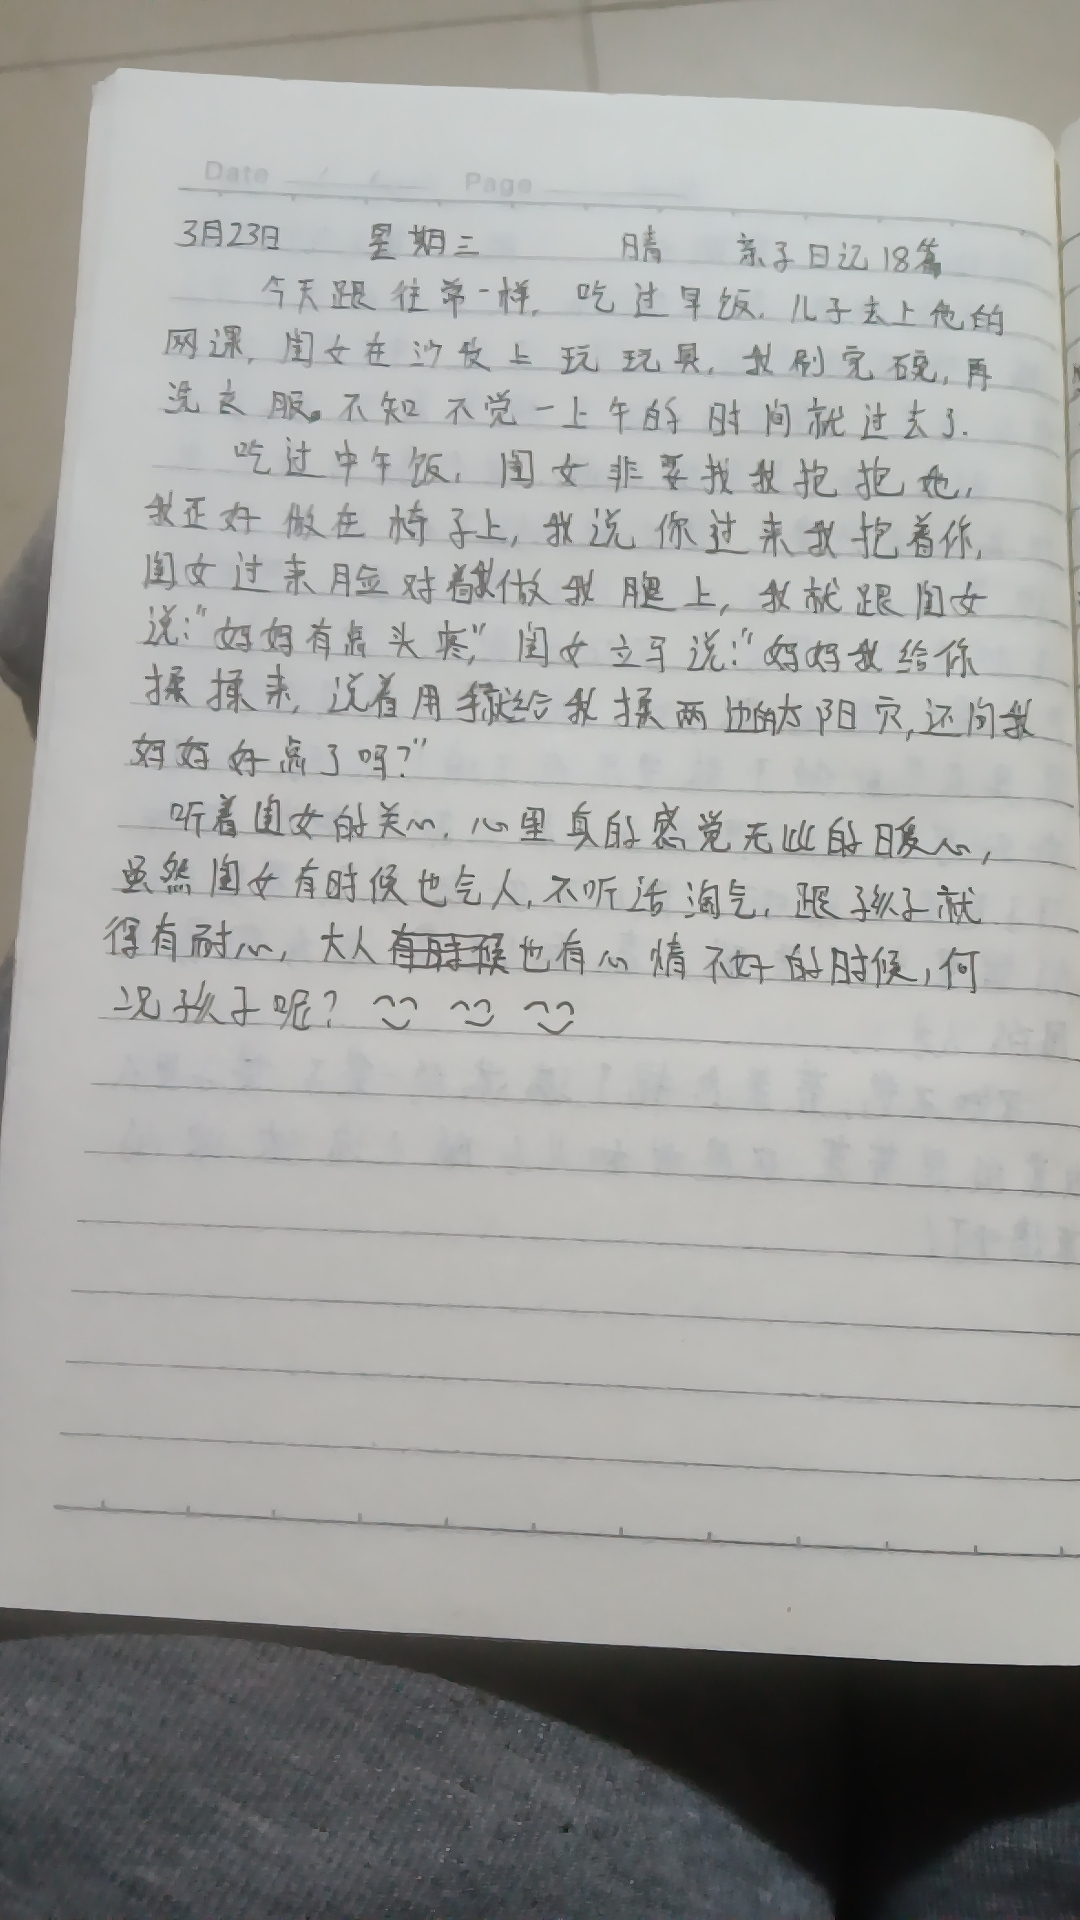 Date / / Page
3月23日 星期三 晴 亲子日记18篇
今天跟往常一样，吃过早饭，儿子去上他的
网课，闺女在沙发上玩玩具，我刷完碗，再
洗衣服。不知不觉一上午的时间就过去了.
吃过中午饭，闺女非要找我抱抱她，
我正好做在椅子上，我说你过来我抱着你，
闺女过来脸对着我做我腿上，我就跟闺女
说："妈妈有点头疼，"闺女立马说："妈妈我给你
揉揉来，说着用手就给我揉两边的太阳穴，还问我
妈妈好点了吗？"
听着闺女的关心，心里真的感觉无比的暖心，
虽然闺女有时候也气人，不听话淘气，跟孩子就
得有耐心，大人有时候也有心情不好的时候，何
况孩子呢？